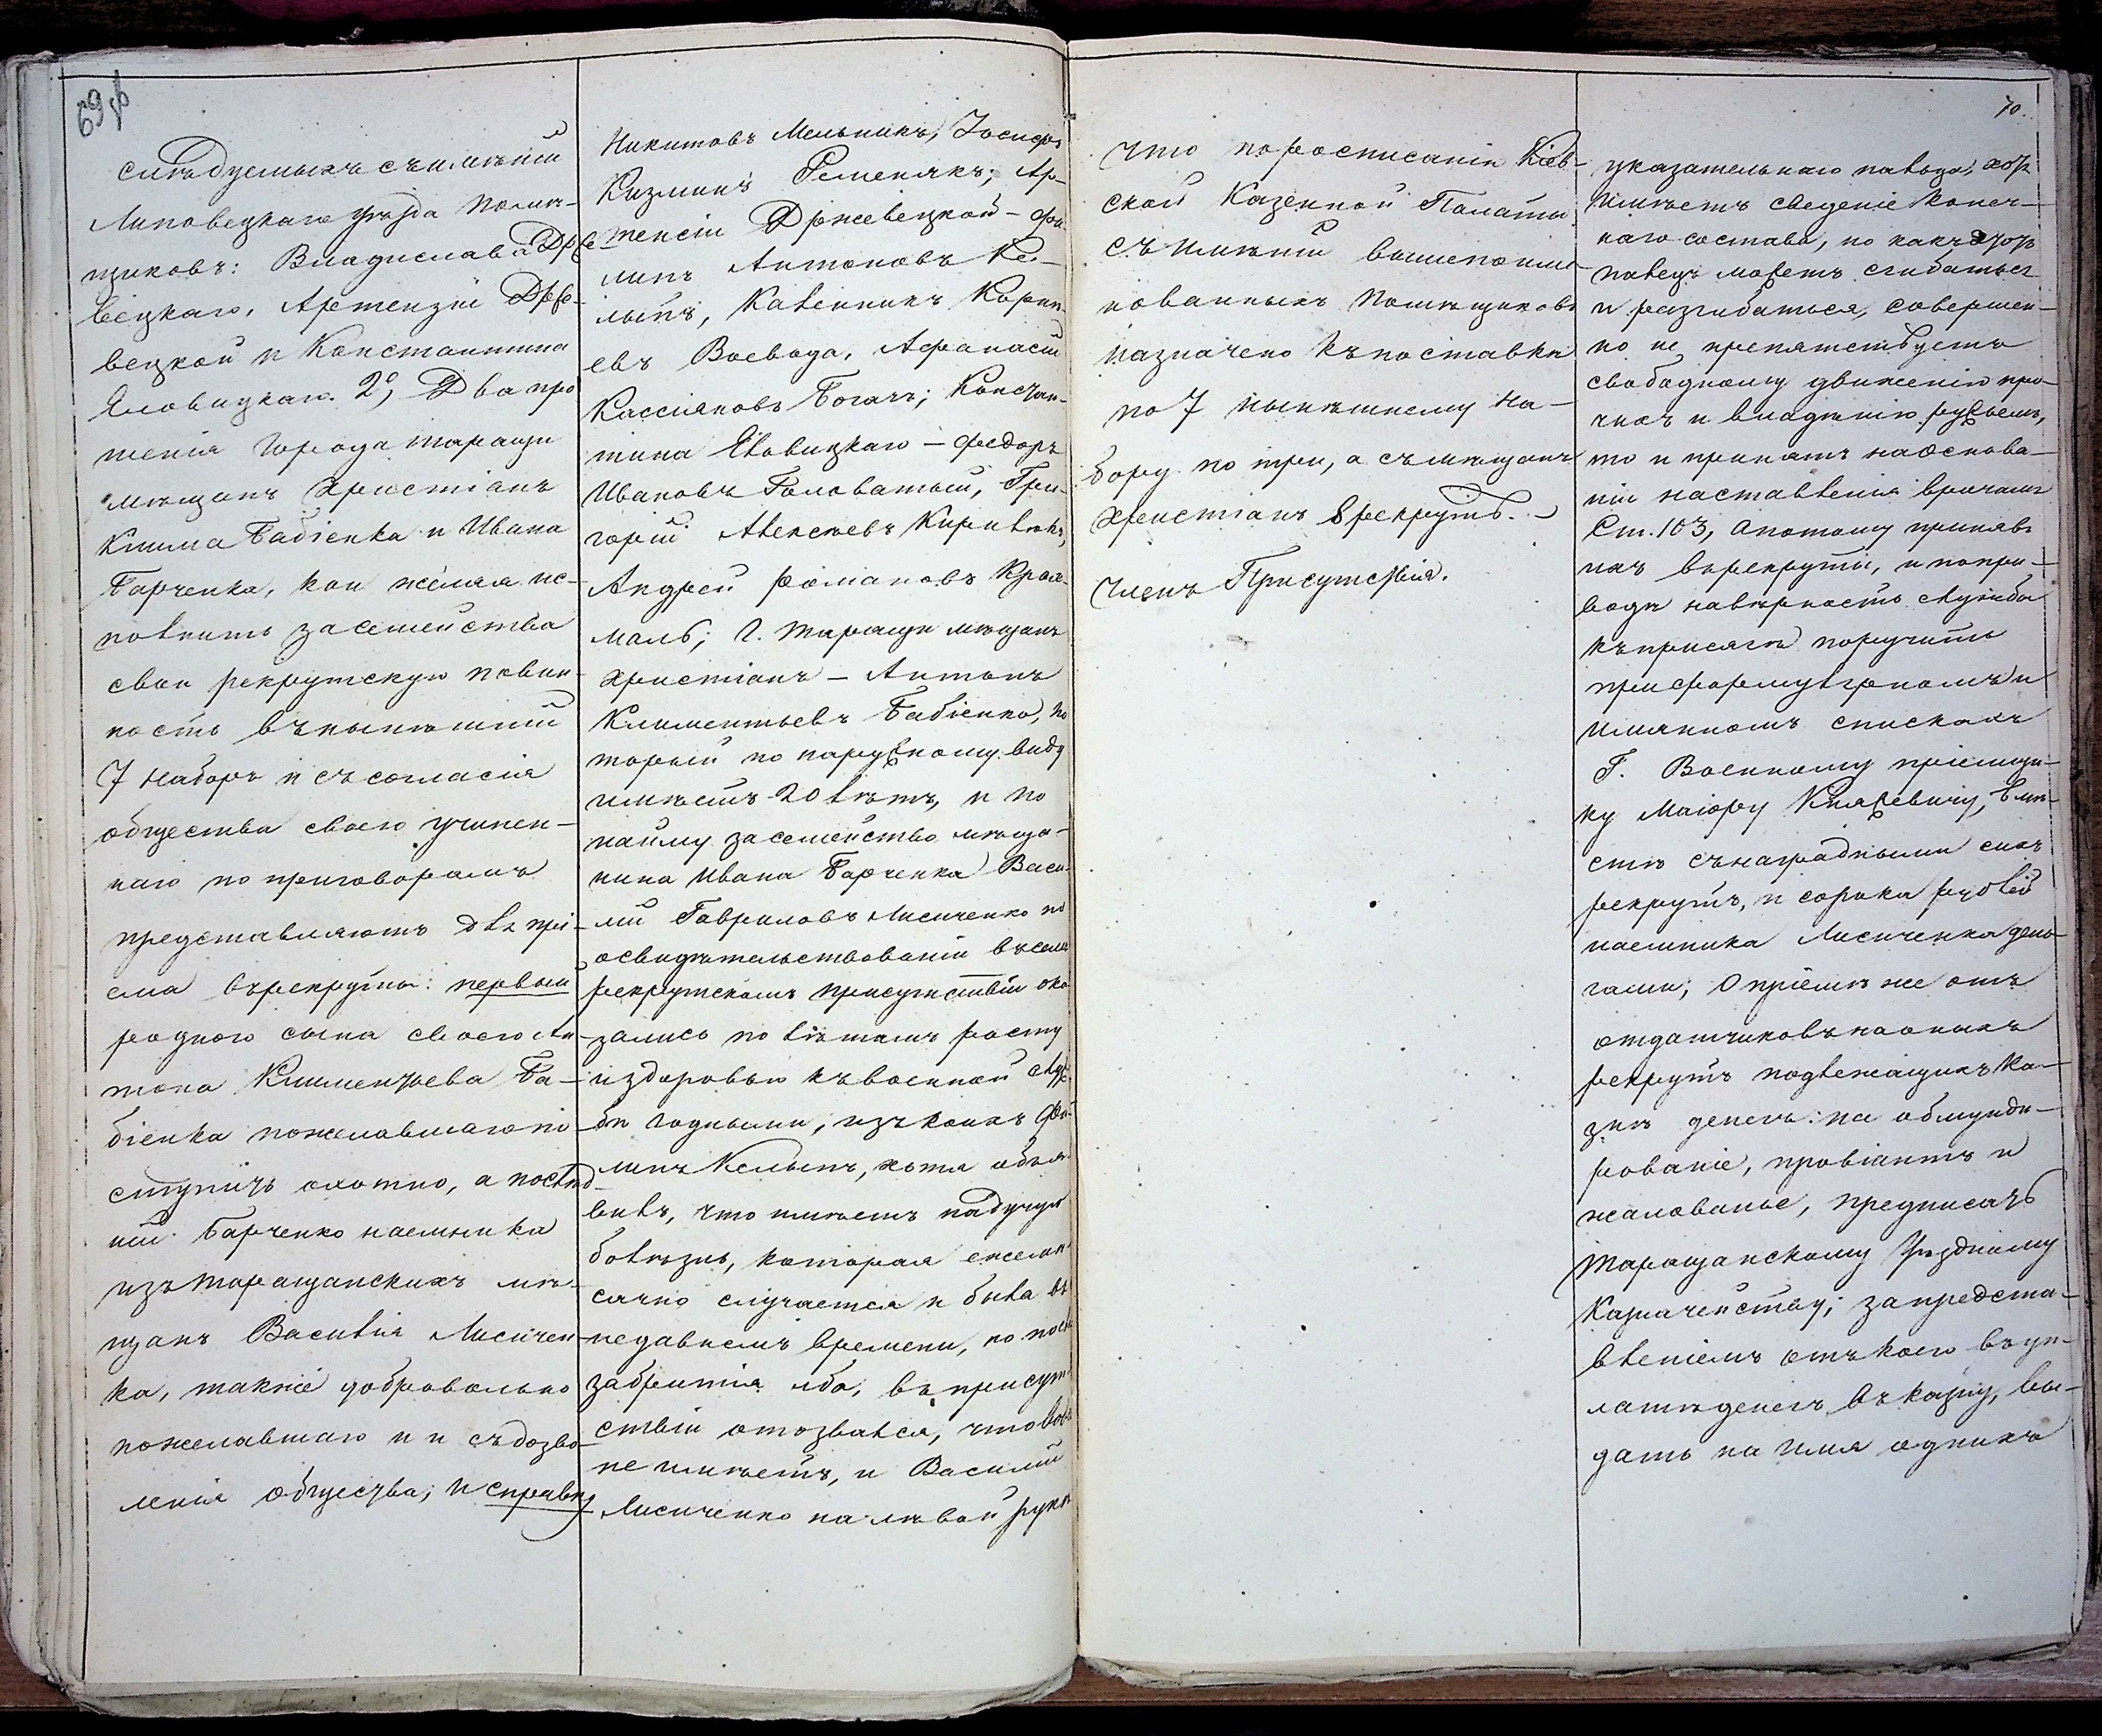 69
слѣдуемыхъ съ имѣній
Липовецкаго уѣзда помѣ-
щиковъ: Владислава Држе-
вецкаго, Артензіи Држе-
вецкой и Константина
Яловицкаго. 2е, Два про
шенія города Таращи
мѣщанъ христіанъ
Клима Бабіенка и Ивана
Барченка, кои желая ис-
полнить за семейства
свои рекрутскую повин-
ность въ нынѣшній
7 наборъ и съ согласія
общества своего учинен-
наго по приговорамъ
представляютъ для прі-
ема въ рекруты: первый
роднаго сына своего Ан
тона Климентьева Ба-
біенка пожелавшаго по
ступить охотно, а послѣд-
ній Барченко наемника
изъ таращанскихъ мѣ-
щанъ Василія Лисичен-
ка, также добровольно
пожелавшаго и съ дозво-
ленія общества; и справку
Никитовъ Мельникъ, Іосифъ
Кизминъ Ременякъ; Ар-
тенсіи Држевецкой - Фи-
липъ Антоновъ Ке-
лыпъ, Калинникъ Корни-
евъ Воевода, Афанасій
Кассіяновъ Богачъ; Констан-
тина Яловицкаго - Федоръ
Ивановъ Головатый, Гри-
горій Алексѣевъ Кирилюкъ,
Андрей Романовъ Кроа-
маль; г. Таращи мѣщанъ
христіанъ - Антонъ
Климентьевъ Бабіенко, ко
торый по наружному виду
имѣетъ 20 лѣтъ, и по
найму за семейство мѣща-
нина Ивана Барченка Васи-
лій Гавриловъ Лисиченко по
освидѣтельствованіи въ семъ
рекрутскомъ присутствіи ока
зались по лѣтамъ росту
и здоровью къ военной служ-
бѣ годными, изъ коихъ Фи-
липъ Келыпъ, хотя объя-
вилъ, что имѣетъ падучую
болѣзнь, которая ежемѣ-
сячно случается и была въ
недавнемъ времени, но послѣ
забритія лба, въ присут
ствіи отозвался, что
не имѣетъ, и Василій
Лисиченко на лѣвой рукѣ
что по росписанію Кіев-
ской Казенной Палаты
съ имѣній вышепоиме-
нованныхъ помѣщиковъ
назначено къ поставкѣ
по 7 нынѣшнему на-
бору по три, а съ мѣщанъ
христіанъ 8 рекрутъ.
Членъ Присутствія.
70.
указательнаго пальца, хотя
имѣетъ сведеніе конеч-
наго состава, но какъ этотъ
палецъ можетъ сгибаться
и разгибаться, совершен-
но не препятствуетъ
свободному движенію про-
чихъ и владѣнію ружьемъ,
то и принятъ на основа-
ніи наставленія врачамъ
Ст. 103, а потому принявъ
ихъ въ рекруты, и по при-
водѣ на вѣрность службы
къ присягѣ поручить
при формулярномъ и
имянномъ спискахъ
Г. Военному пріемщи-
ку Маіору Княжевичу, вмѣ-
стѣ съ наградными сихъ
рекрутъ, и сорока рублей
наемника Лисиченка день-
гами; О пріемѣ же отъ
отдатчиковъ на оныхъ
рекрутъ подлежащихъ ка-
знѣ денегъ: на обмунди-
рованіе, провіантъ и
жалованье, предписать
Таращанскому Уѣздному
Казначейству; за предста-
вленіемъ отъ коего въ уп-
латѣ денегъ въ казну, вы-
дать на имя однихъ